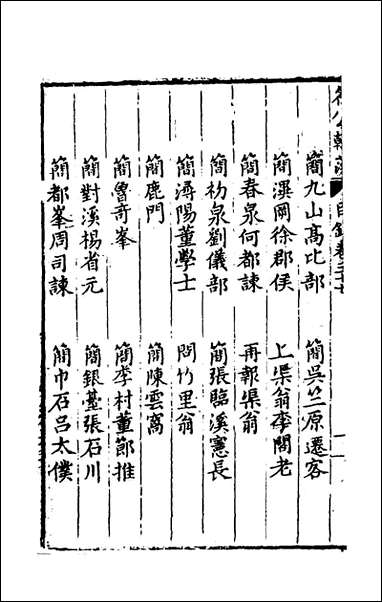 名公翰藻 目錄卷二十七
簡九山高比部 簡吳竺原遷客
簡岡徐郡侯 上渠翁李閣老
簡春泉何都諫 再報渠翁
簡泉劉儀部 簡張臨溪憲長
簡潯陽董學士 問竹里翁
簡鹿門 簡陳雲窩
簡魯奇峯 簡李村董節推
簡對溪楊省元 簡銀臺張石川
簡都峯周司諫 簡巾石呂太僕